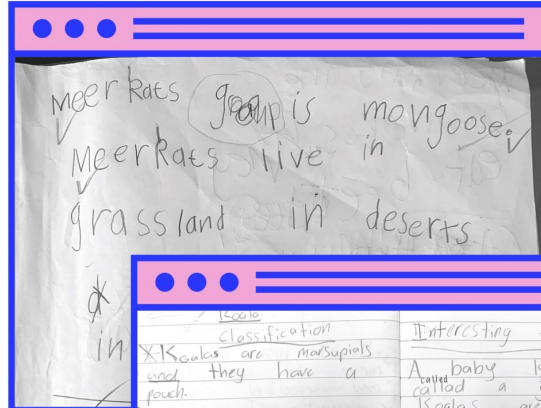 Meerkats group is mongoose.
Meerkats live in
grassland in deserts
in
Koala
Classification
X-Koalas are marsupials
and they have a
pouch.
Interesting
A baby
called
callad a
Koalas are